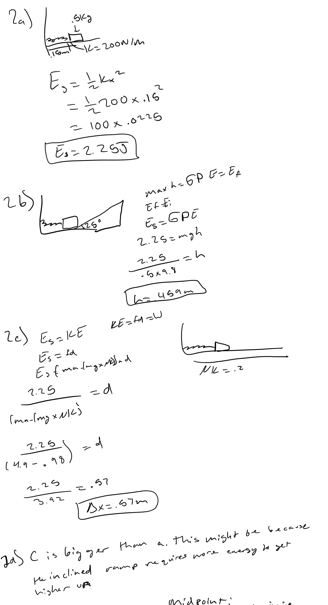 2a)
.5Kg
15m
K=200N/m
Es = 1/2 Kx²
= 1/2 200 x .15²
= 100 x .0225
Es = 2.25J
2b)
25°
max h = GPE = Ef
Ef = Ei
Es = GPE
2.25 = mgh
2.25 / .5x9.8 = h
h = .459m
2c)
Es = KE
KE = Fd = W
Es = Fd
2.25 = d
μK = .2
2.25 / (4.9 - .98) = d
2.25 / 3.92 = .57
Δx = .57m
2d) C is bigger than a. This might be because
the inclined ramp requires more energy to get
higher up
Midpoint: